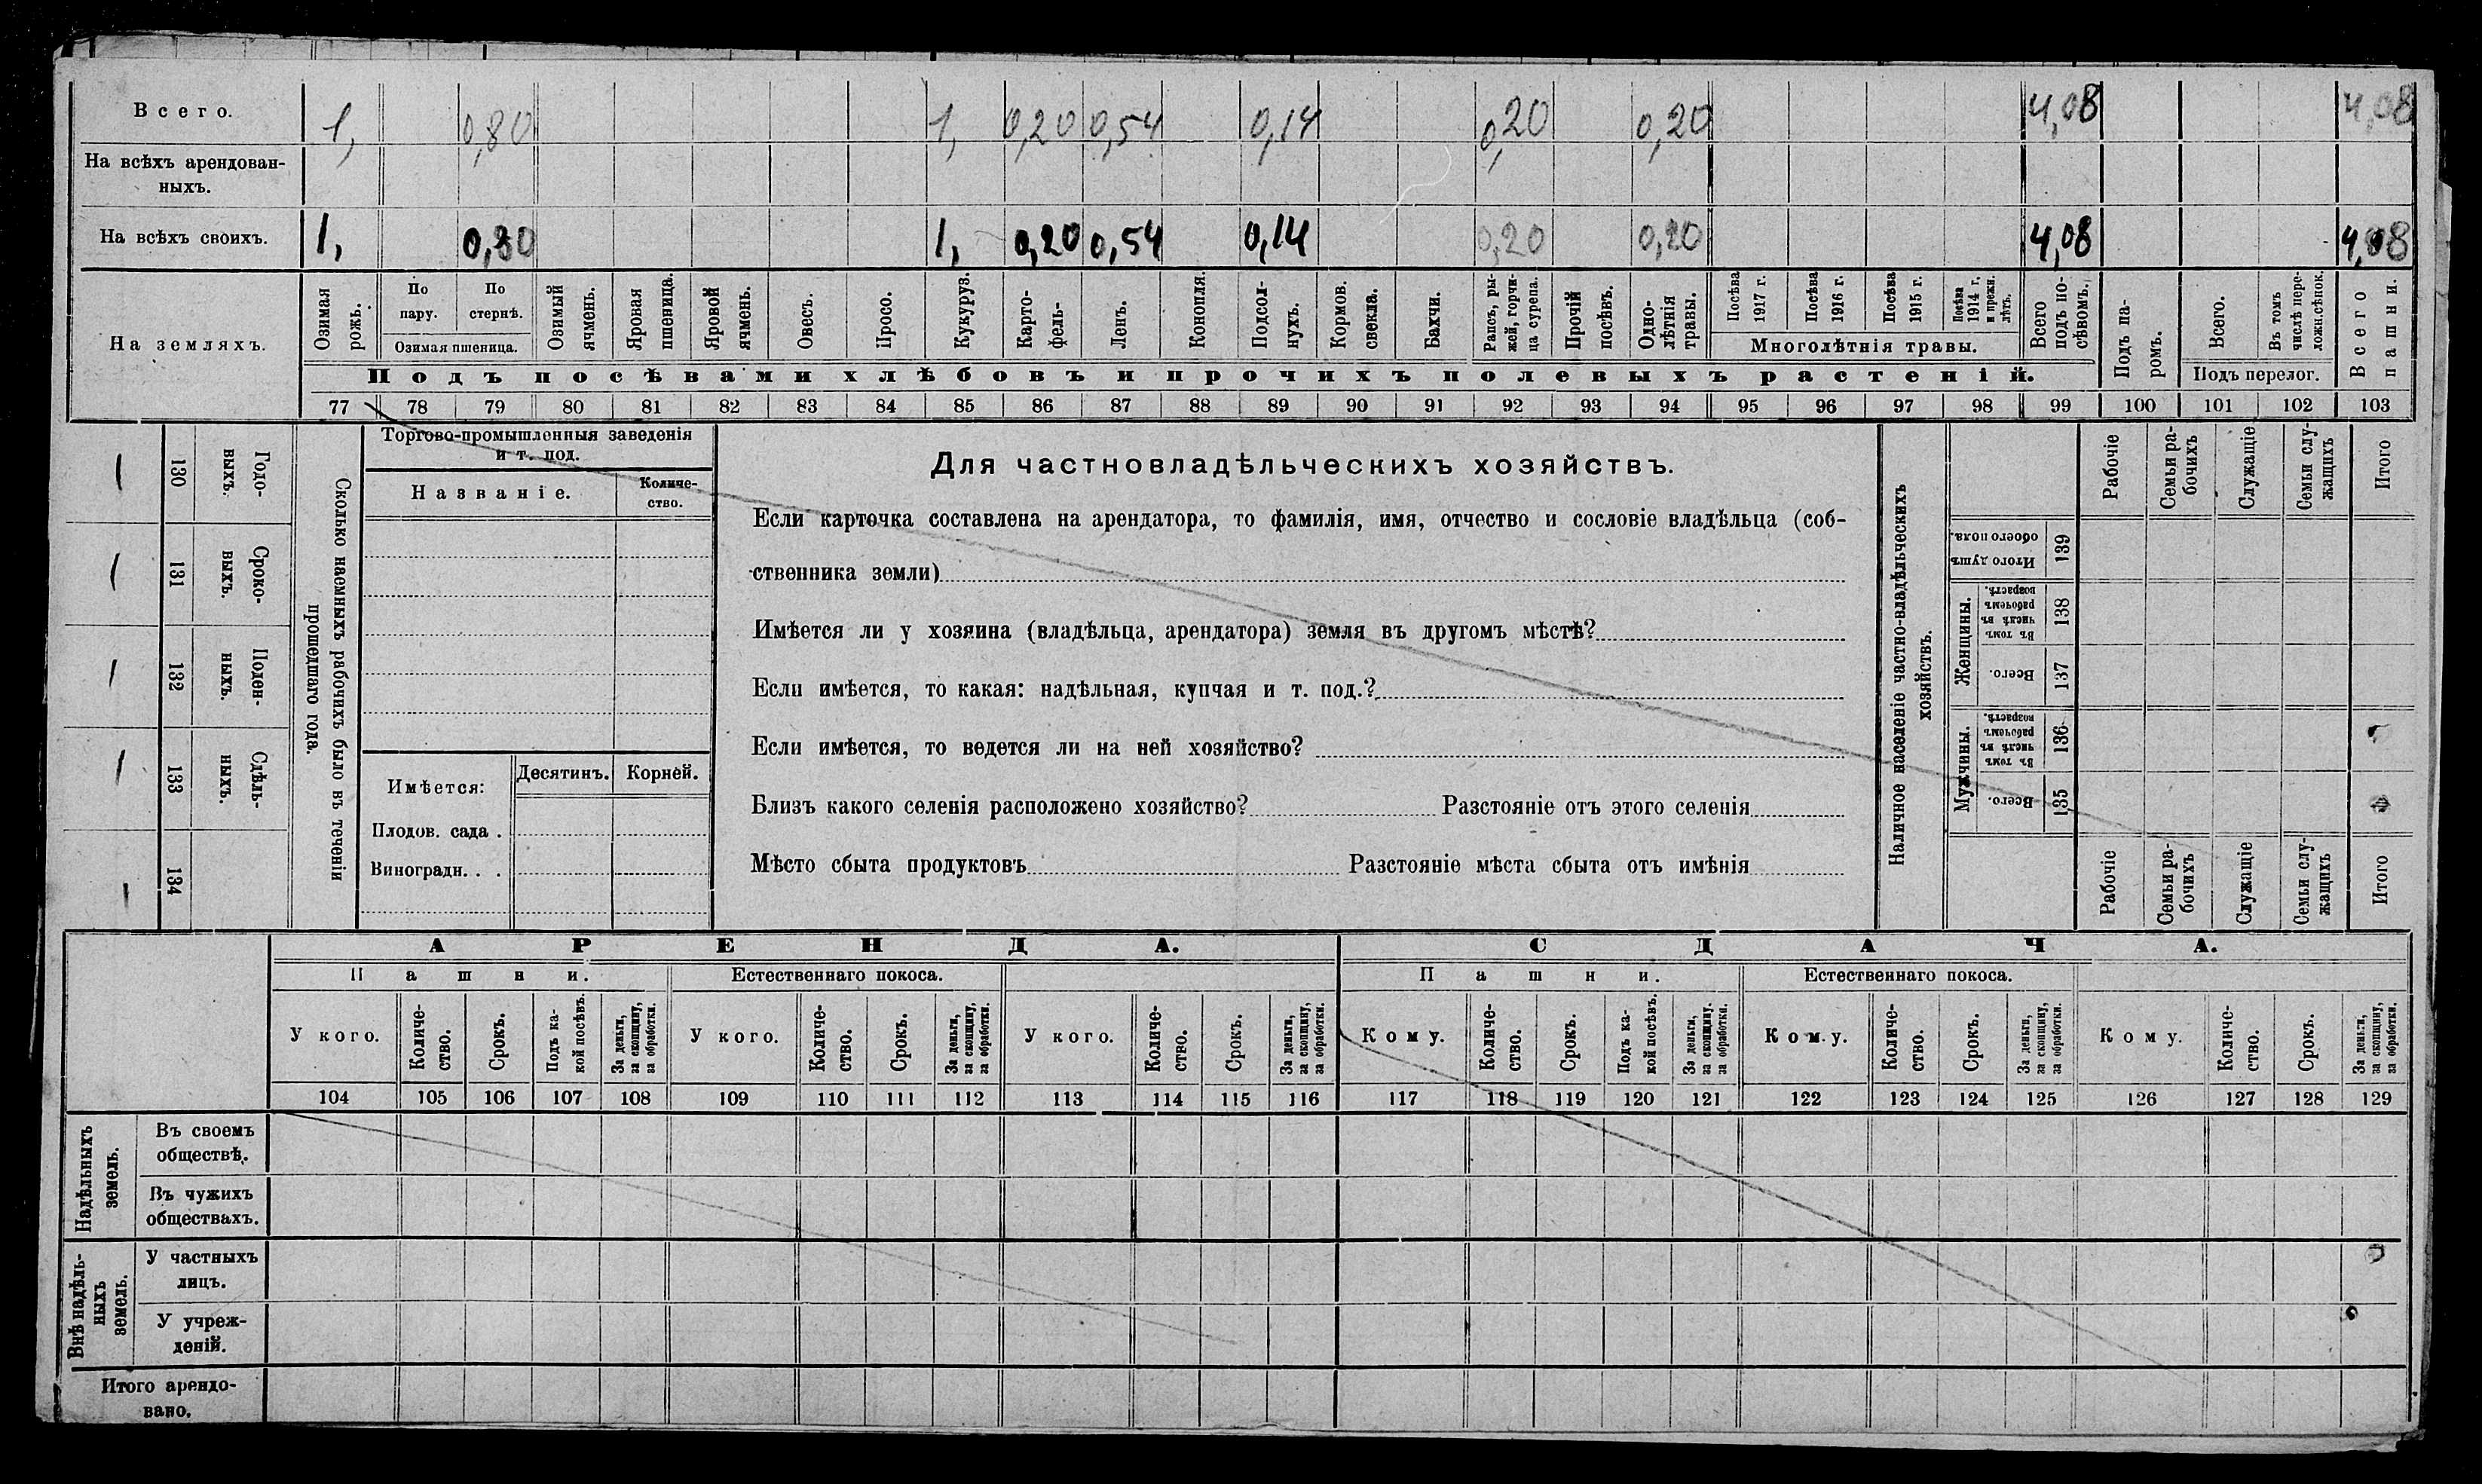 Всего. 1, 0,80 1, 0,20 0,54 0,14 0,20 0,20 4,08 4,08
На всѣхъ арендован-
ныхъ.
На всѣхъ своихъ. 1, 0,80 1, 0,20 0,54 0,14 0,20 0,20 4,08 4,08
На земляхъ.
Озимая
рожь.
По
пару.
По
стернѣ.
Озимая пшеница.
Озимый
ячмень.
Яровая
пшеница.
Яровой
ячмень.
Овесъ.
Просо.
Кукуруз.
Карто-
фель-
Ленъ.
Конопля.
Подсол-
нухъ.
Кормов.
свекла.
Бахчи.
Рапсъ, ры-
жей, горчи-
ца сурепа.
Прочій
посѣвъ.
Одно-
лѣтнія
травы.
Посѣва
1917 г.
Посѣва
1916 г.
Посѣва
1915 г.
Посѣва
1914 г.
и прежн.
лѣтъ.
Многолѣтнія травы.
Всего
подъ по-
сѣвомъ.
Подъ па-
ромъ.
Всего.
Въ томъ
числѣ пере-
ложн.сѣнок.
Подъ перелог.
Всего
пашни.
Подъ посѣвами хлѣбовъ и прочихъ полевыхъ растеній.
77 78 79 80 81 82 83 84 85 86 87 88 89 90 91 92 93 94 95 96 97 98 99 100 101 102 103
130
Годо-
выхъ.
131
Сроко-
выхъ.
132
Поден-
ныхъ.
133
Сдѣль-
ныхъ.
134
Сколько наемныхъ рабочихъ было въ теченіи
прошедшаго года.
Торгово-промышленныя заведенія
и т. под.
Названіе.
Количе-
ство.
Имѣется:
Десятинъ. Корней.
Плодов. сада .
Виноградн. . .
Для частновладѣльческихъ хозяйствъ.
Если карточка составлена на арендатора, то фамилія, имя, отчество и сословіе владѣльца (соб-
ственника земли)
Имѣется ли у хозяина (владѣльца, арендатора) земля въ другомъ мѣстѣ?
Если имѣется, то какая: надѣльная, купчая и т. под.?
Если имѣется, то ведется ли на ней хозяйство?
Близъ какого селенія расположено хозяйство? Разстояніе отъ этого селенія
Мѣсто сбыта продуктовъ Разстояніе мѣста сбыта отъ имѣнія
Наличное населеніе частно-владѣльческихъ
хозяйствъ.
Рабочіе
Семьи ра-
бочихъ
Служащіе
Семьи слу-
жащихъ
Итого
Итого душъ
обоего пола.
139
Женщины.
Въ томъ
числѣ въ
рабочемъ
возрастѣ.
138
Всего.
137
Мужчины.
Въ томъ
числѣ въ
рабочемъ
возрастѣ.
136
Всего.
135
Рабочіе
Семьи ра-
бочихъ
Служащіе
Семьи слу-
жащихъ
Итого
АРЕНДА. СДАЧА.
Пашни. Естественнаго покоса. Пашни. Естественнаго покоса.
У кого.
Количе-
ство.
Срокъ.
Подъ ка-
кой посѣвъ.
За деньги,
за скопщину,
за обработки.
У кого.
Количе-
ство.
Срокъ.
За деньги,
за скопщину,
за обработки.
У кого.
Количе-
ство.
Срокъ.
За деньги,
за скопщину,
за обработки.
Кому.
Количе-
ство.
Срокъ.
Подъ ка-
кой посѣвъ.
За деньги,
за скопщину.
за обработки.
Кому.
Количе-
ство.
Срокъ.
За деньги,
за скопщину,
за обработки.
Кому.
Количе-
ство.
Срокъ.
За деньги,
за скопщину,
за обработки.
104 105 106 107 108 109 110 111 112 113 114 115 116 117 118 119 120 121 122 123 124 125 126 127 128 129
Надѣльныхъ
земель.
Въ своемъ
обществѣ.
Въ чужихъ
обществахъ.
Внѣ надѣль-
ныхъ
земель.
У частныхъ
лицъ.
У учреж-
деній.
Итого арендо-
вано.